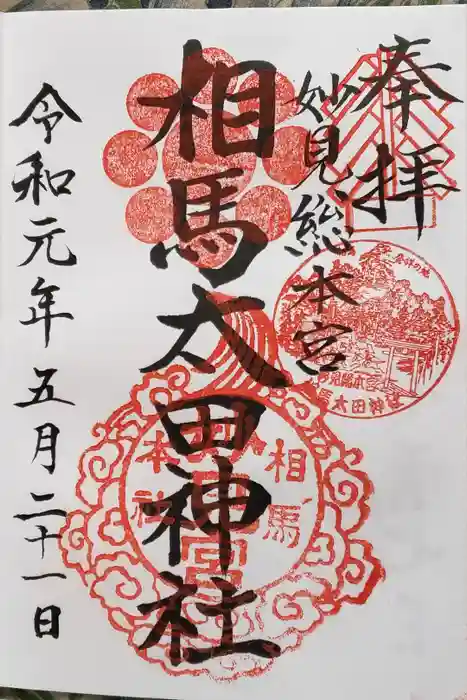 奉拝
妙見総本宮
相馬太田神社
令和元年五月二十一日
発祥の地
妙見総本宮
相馬太田神社
相馬
本社